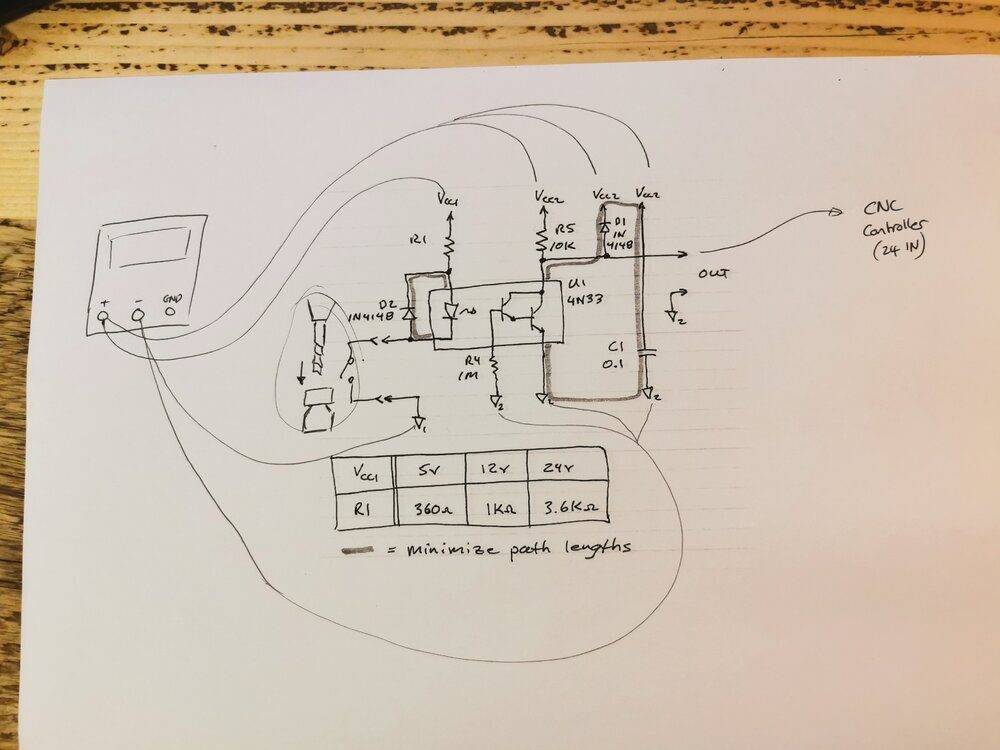 +
-
GND
Vcc1
R1
D2
1N4148
Vcc2
R5
10K
Vcc2
D1
1N
4148
Vcc2
U1
4N33
OUT
2
CNC
Controller
(24 IN)
R4
1M
C1
0.1
2
2
2
1
Vcc1 5v 12v 24v
R1 360Ω 1KΩ 3.6KΩ
= minimize path lengths